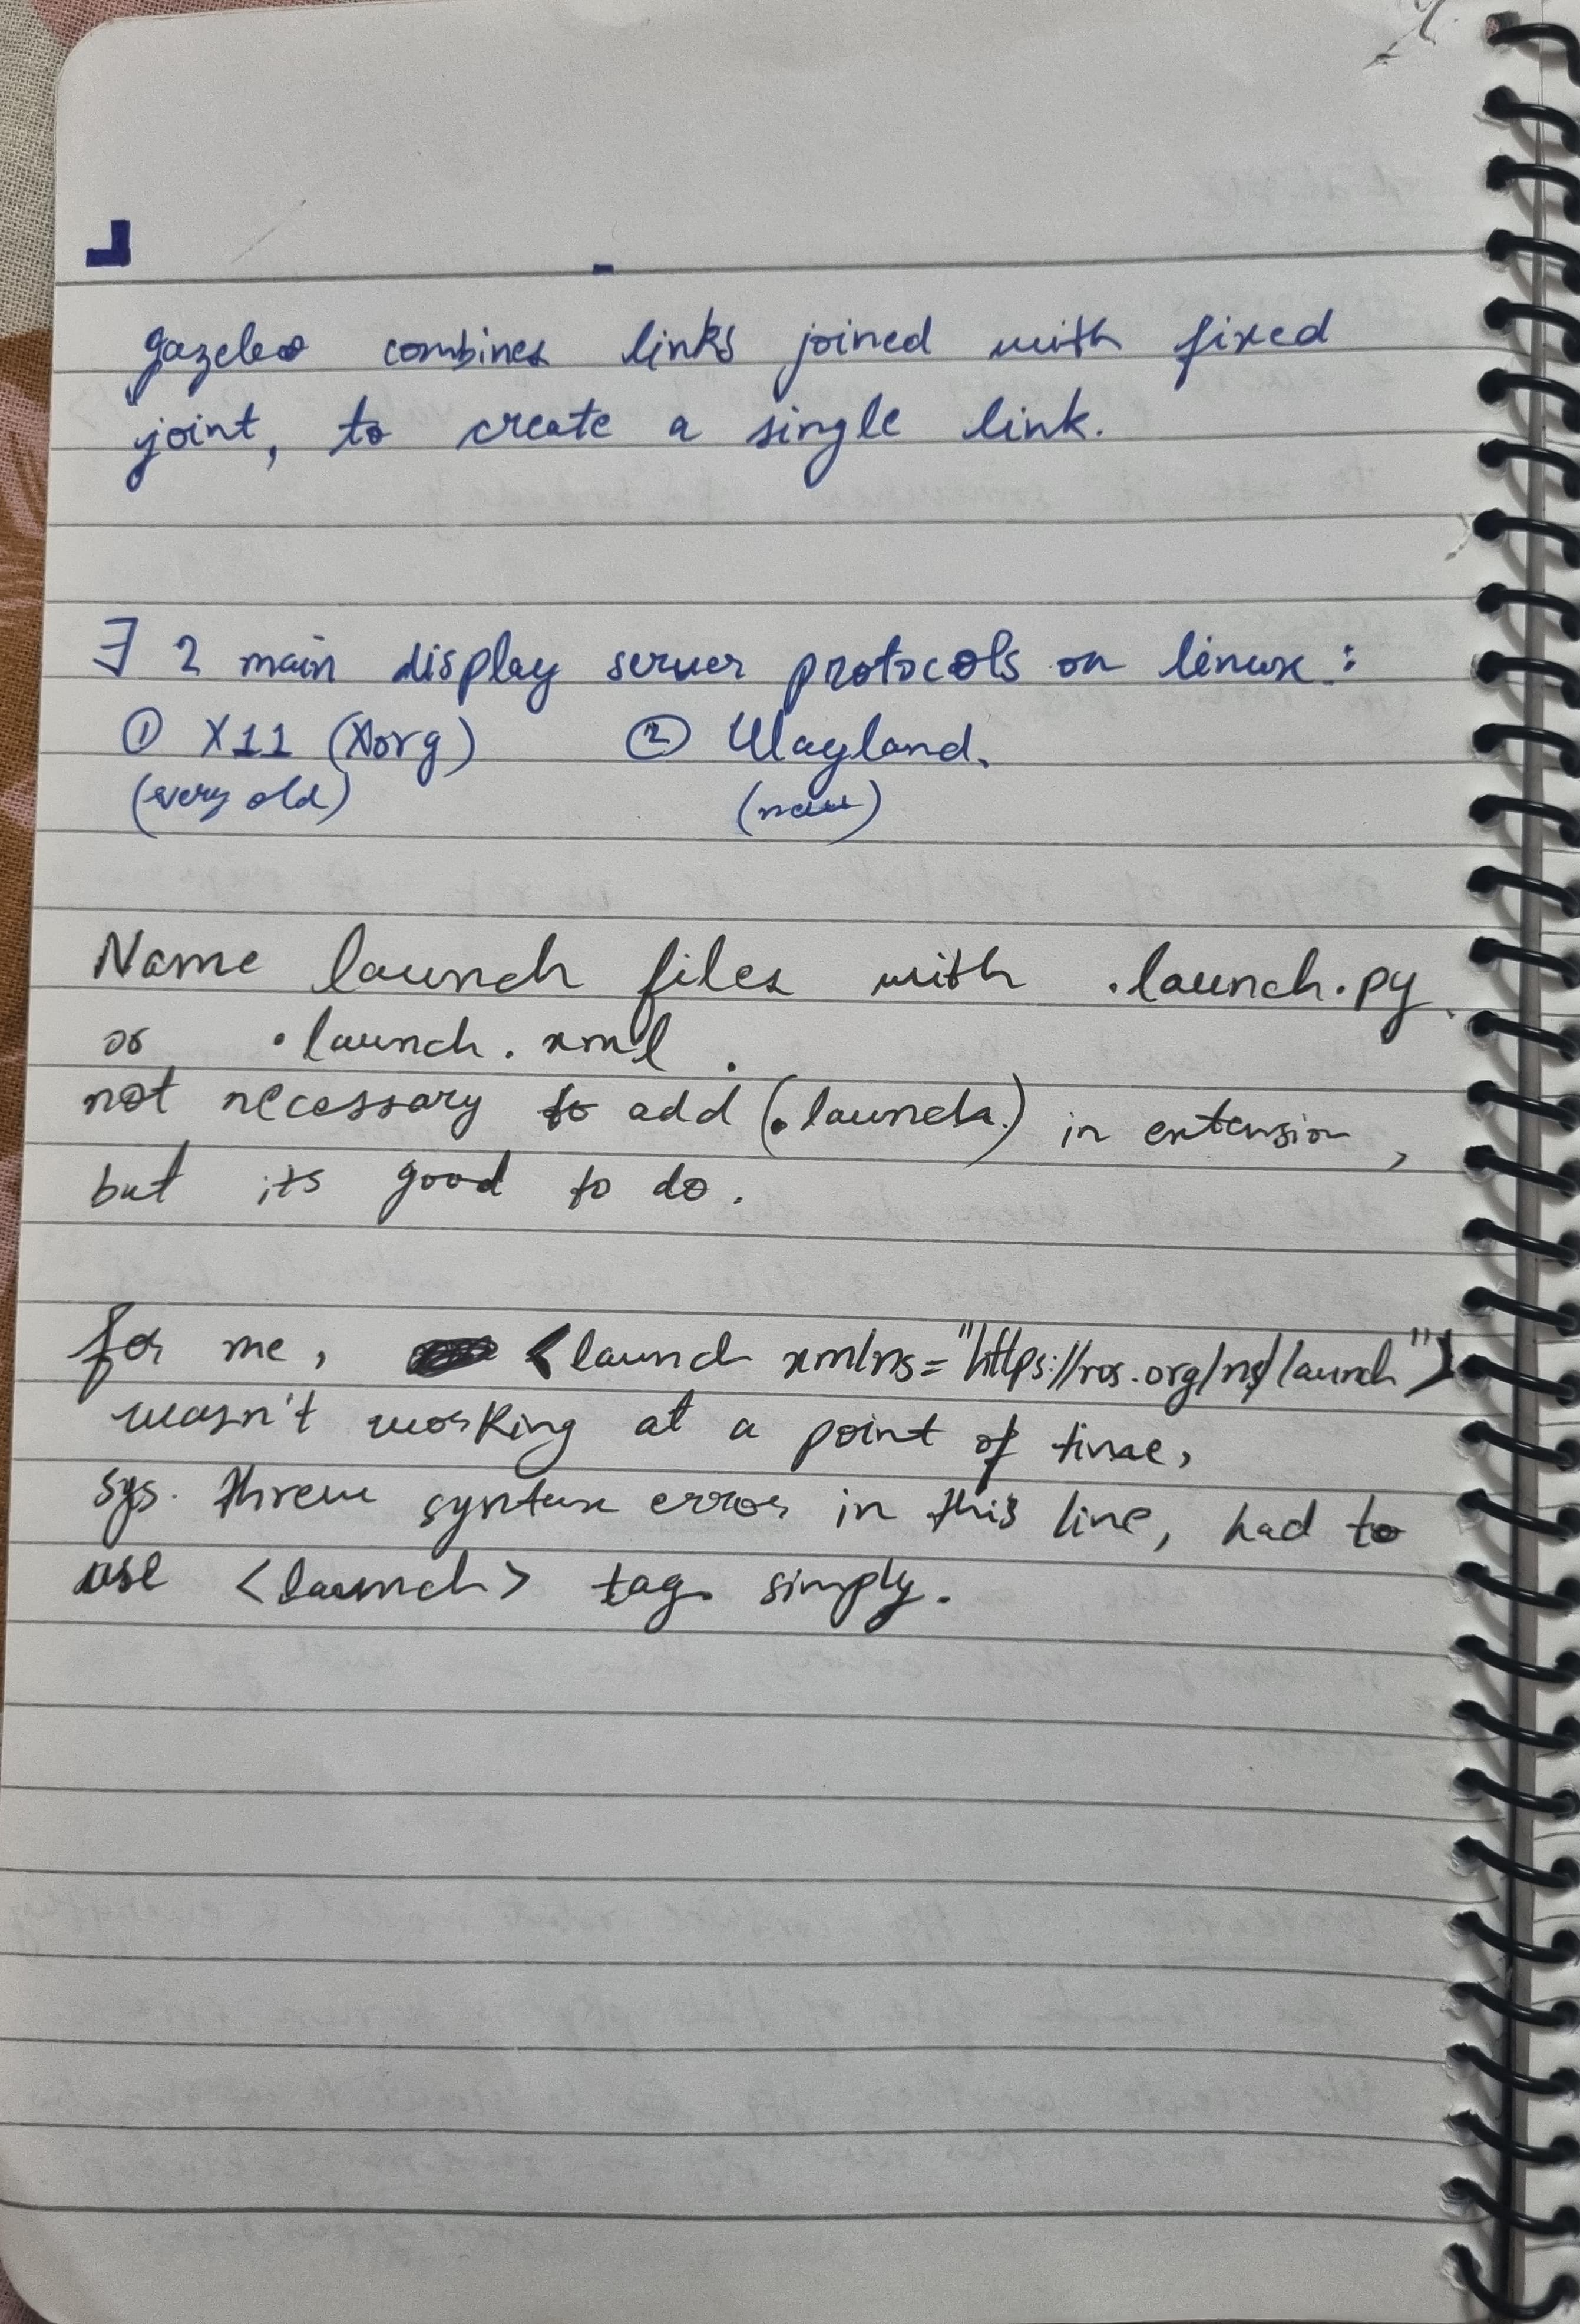 gazebo combines links joined with fixed
joint, to create a single link.
∃ 2 main display server protocols on linux :
① X11 (Xorg) ② Wayland.
(very old) (new)
Name launch files with .launch.py
or .launch.xml .
not necessary to add (.launch.) in extension,
but its good to do.
for me, <launch xmlns="https://ros.org/ns/launch">
wasn't working at a point of time,
sys. threw syntax error in this line, had to
use <launch> tag simply.